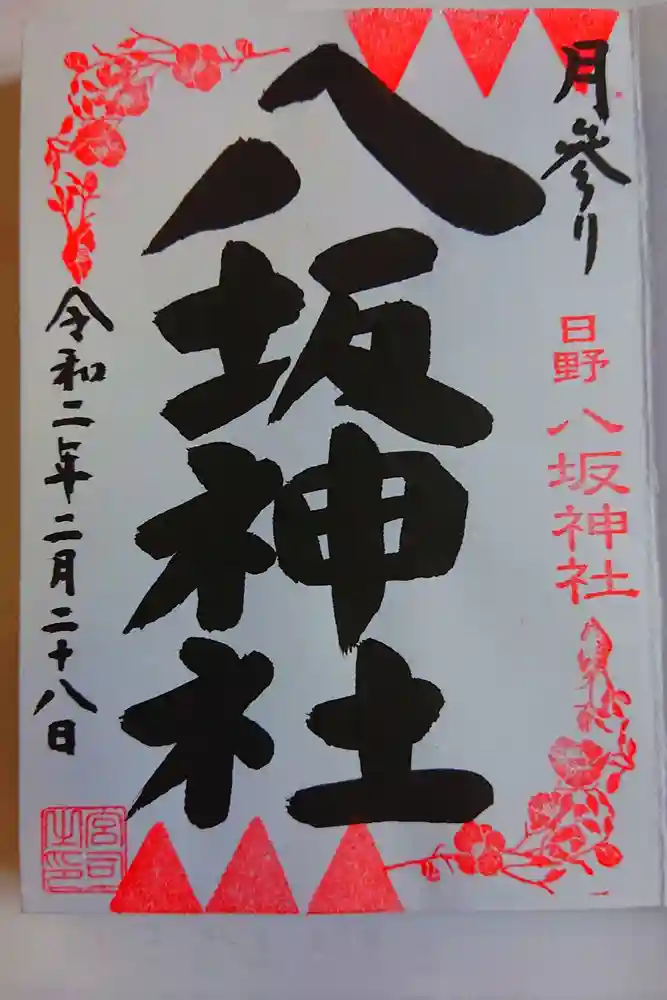 月参り
日野八坂神社
八坂神社
令和二年二月二十八日
宮司之印